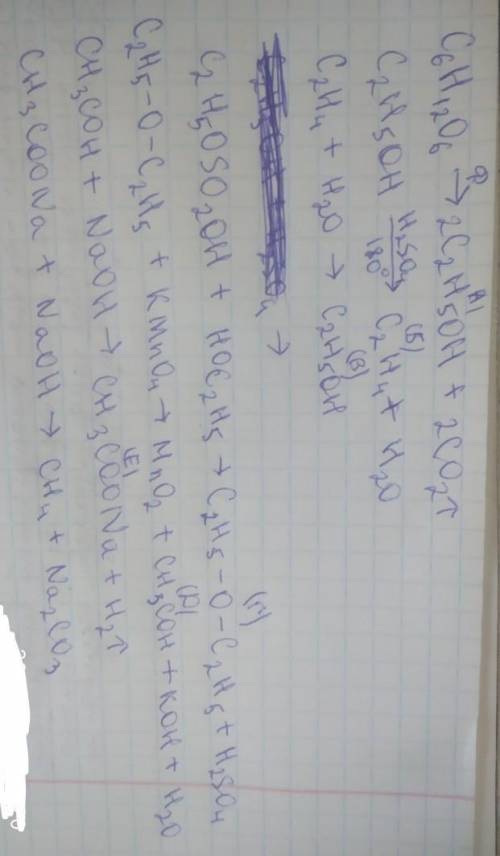 C6H12O6 ф→ 2C2H5OH (А) + 2CO2↑
C2H5OH H2SO4 180°→ C2H4 (Б) + H2O
C2H4 + H2O → C2H5OH (В)
→
C2H5OSO2OH + HOC2H5 → C2H5-O-C2H5 (Г) + H2SO4
C2H5-O-C2H5 + KMnO4 → MnO2 + CH3COH (Д) + KOH + H2O
CH3COH + NaOH → CH3COONa (Е) + H2↑
CH3COONa + NaOH → CH4 + Na2CO3